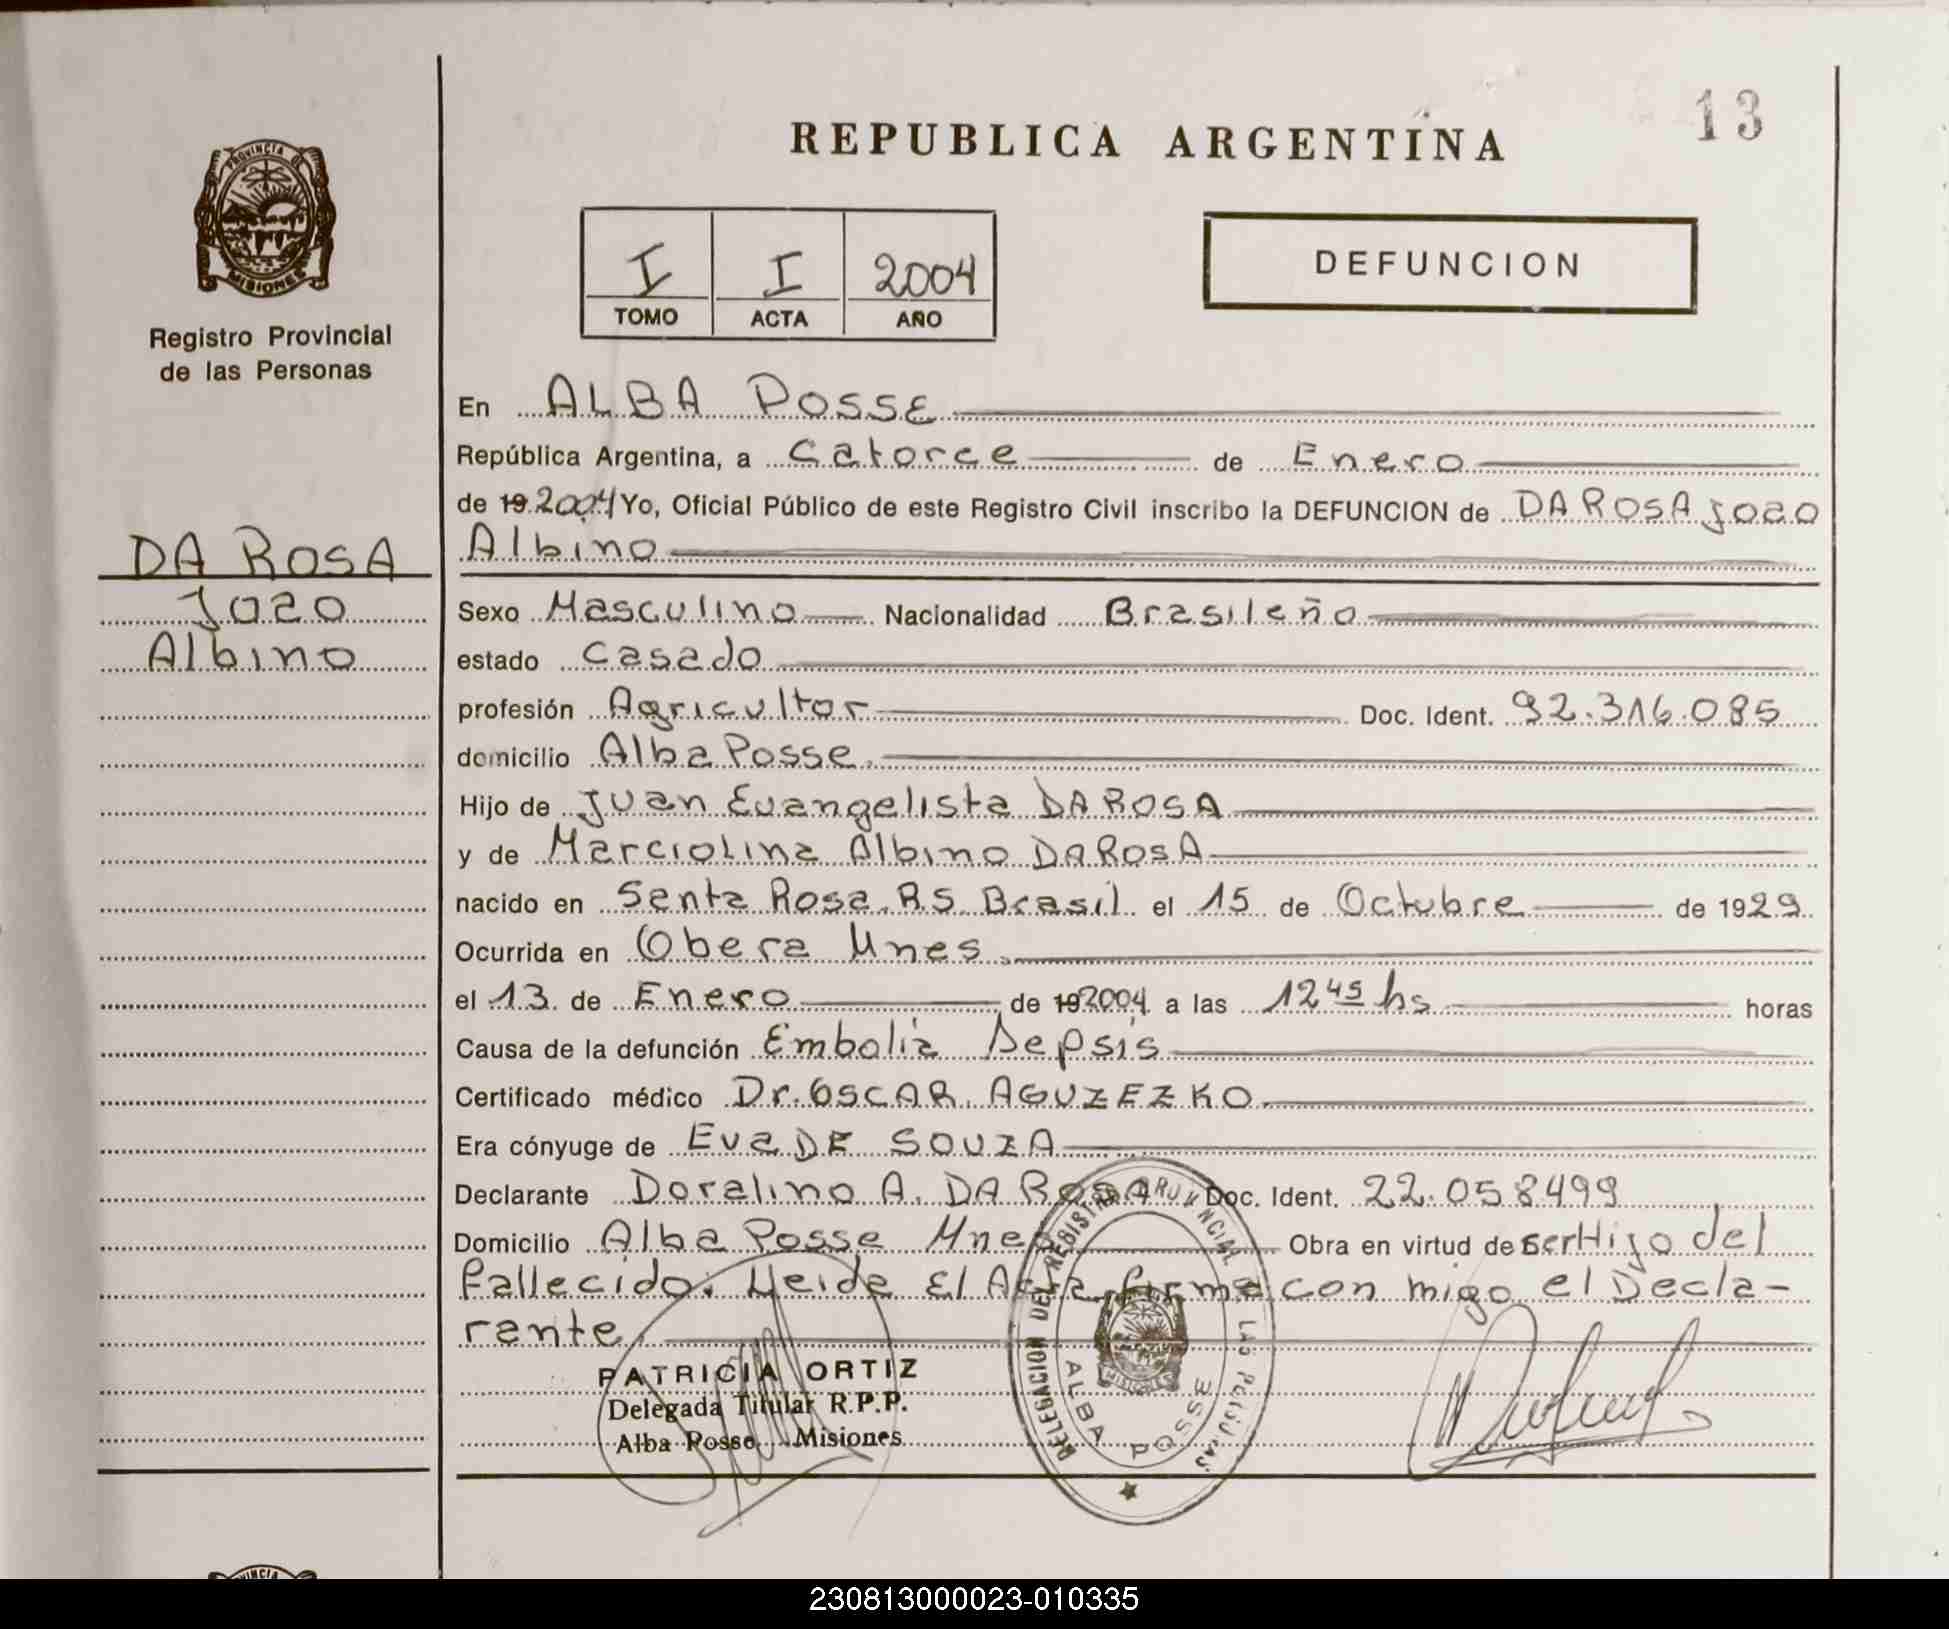 13
REPUBLICA ARGENTINA
PROVINCIA DE
MISIONES
Registro Provincial
de las Personas
I I 2004
TOMO ACTA AÑO
DEFUNCION
DA ROSA
Joao
Albino
En ALBA POSSE
República Argentina, a Catorce de Enero
de 19 2004 Yo, Oficial Público de este Registro Civil inscribo la DEFUNCION de DA ROSA Joao
Albino
Sexo Masculino Nacionalidad Brasileño
estado Casado
profesión Agricultor Doc. Ident. 92.316.085
domicilio Alba Posse.
Hijo de Juan Evangelista DA ROSA
y de Marciolina Albino DA ROSA
nacido en Santa Rosa. RS. Brasil el 15 de Octubre de 1929
Ocurrida en Obera Mnes.
el 13 de Enero de 19 2004 a las 12 45 hs horas
Causa de la defunción Embolia Sepsis
Certificado médico Dr. OSCAR. AGUZEZKO.
Era cónyuge de Eva DE SOUZA
Declarante Doralino A. DA ROSA Doc. Ident. 22.058499
Domicilio Alba Posse Mnes Obra en virtud de ser Hijo del
fallecido. Leida El Acta firma con migo el Decla-
rante.
PATRICIA ORTIZ
Delegada Titular R.P.P.
Alba Posse Misiones
DELEGACION DEL REGISTRO PROVINCIAL DE LAS PERSONAS
ALBA POSSE
MISIONES
230813000023-010335